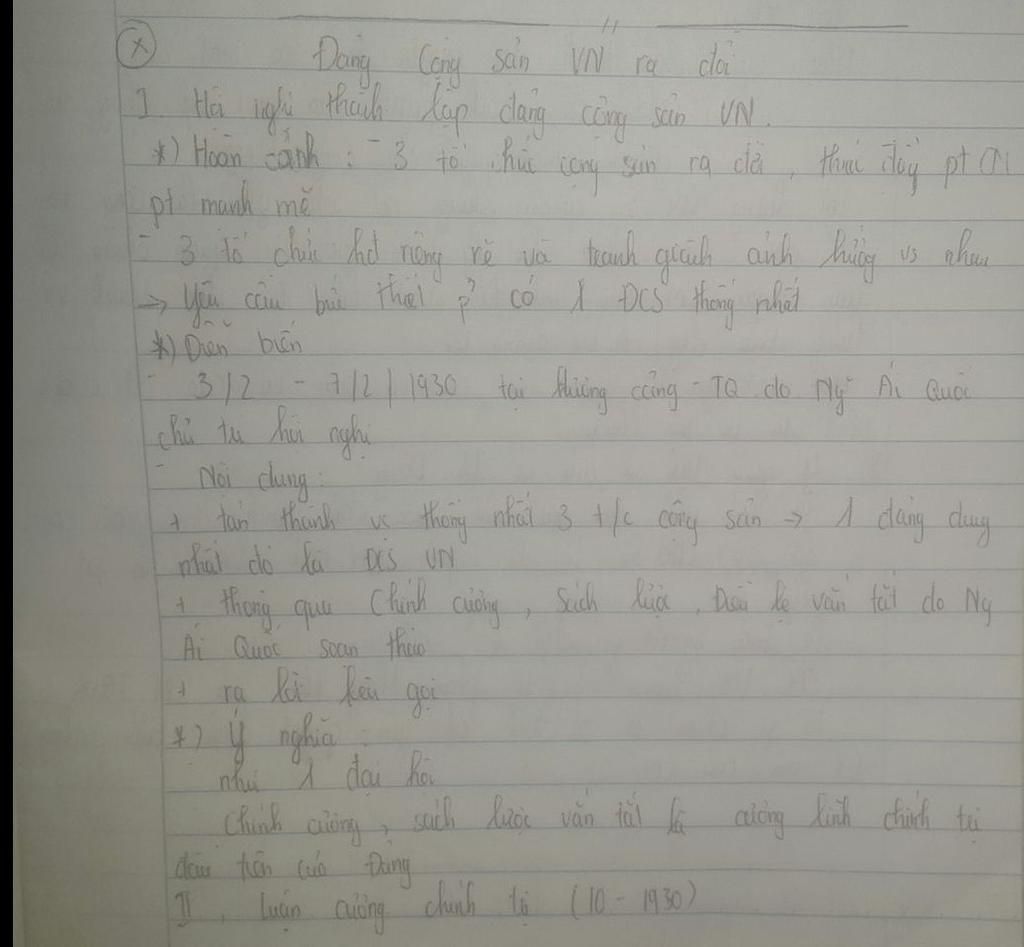 Đảng Cộng sản VN ra đời
I Hội nghị thành lập đảng cộng sản VN.
*) Hoàn cảnh : - 3 tổ chức cộng sản ra đời, thúc đẩy pt CM
pt mạnh mẽ
- 3 tổ chức hđ riêng rẽ và tranh giành ảnh hưởng vs nhau
→ yêu cầu bức thiết p? có 1 ĐCS thống nhất
*) Diễn biến
- 3/2 - 7/2/1930 tại Hương cảng - TQ do Ng~ Ái Quốc
chủ trì hội nghị
- Nội dung:
+ tán thành vc thống nhất 3 t/c cộng sản → 1 đảng duy
nhất đó là ĐCS VN
+ thông qua Chính cương, Sách lược, Điều lệ vắn tắt do Ng
Ái Quốc soạn thảo
+ ra lời kêu gọi
*) Ý nghĩa :
như 1 đại hội
Chính cương, sách lược vắn tắt là cương lĩnh chính trị
đầu tiên của Đảng
II, Luận cương chính trị (10 - 1930)